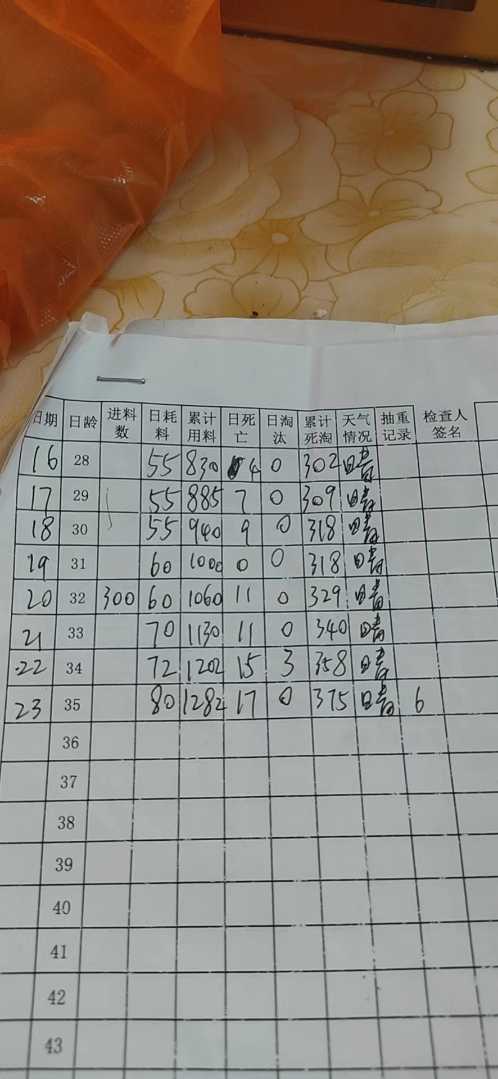 日期 日龄 进料数 日耗料 累计用料 日死亡 日淘汰 累计死淘 天气情况 抽重记录 检查人签名
16 28 55 830 4 0 302 晴
17 29 55 885 7 0 309 晴
18 30 55 940 9 0 318 晴
19 31 60 1000 0 0 318 晴
20 32 300 60 1060 11 0 329 晴
21 33 70 1130 11 0 340 晴
22 34 72 1202 15 3 358 晴
23 35 80 1282 17 0 375 晴 6
36
37
38
39
40
41
42
43